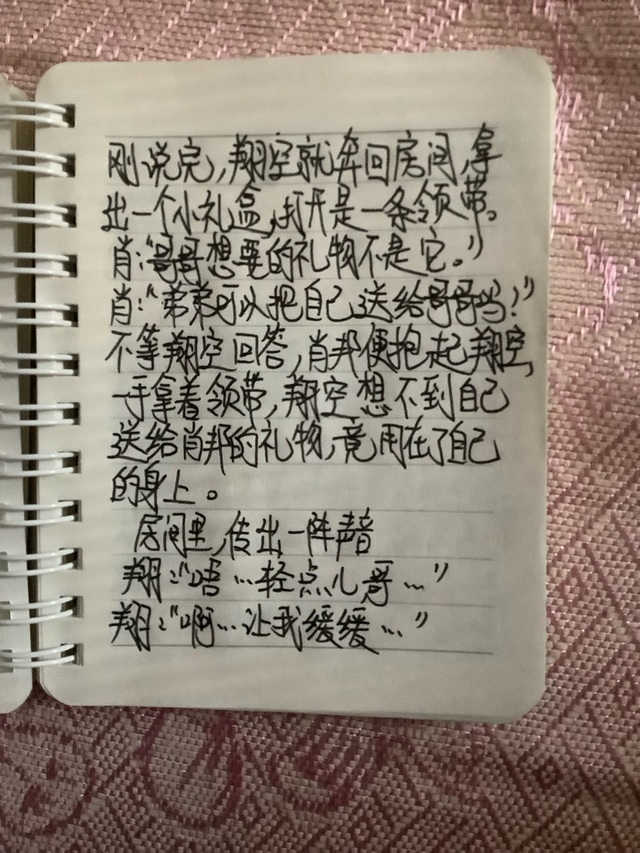 刚说完，翔空就奔回房间，拿
出一个小礼盒，打开是一条领带。
肖：“哥哥想要的礼物不是它。”
肖：“弟弟可以把自己送给哥哥吗？”
不等翔空回答，肖邦便抱起翔空，
一手拿着领带，翔空想不到自己
送给肖邦的礼物，竟用在了自己
的身上。
房间里，传出一阵声音
翔：“唔…轻点儿哥…”
翔：“啊…让我缓缓…”